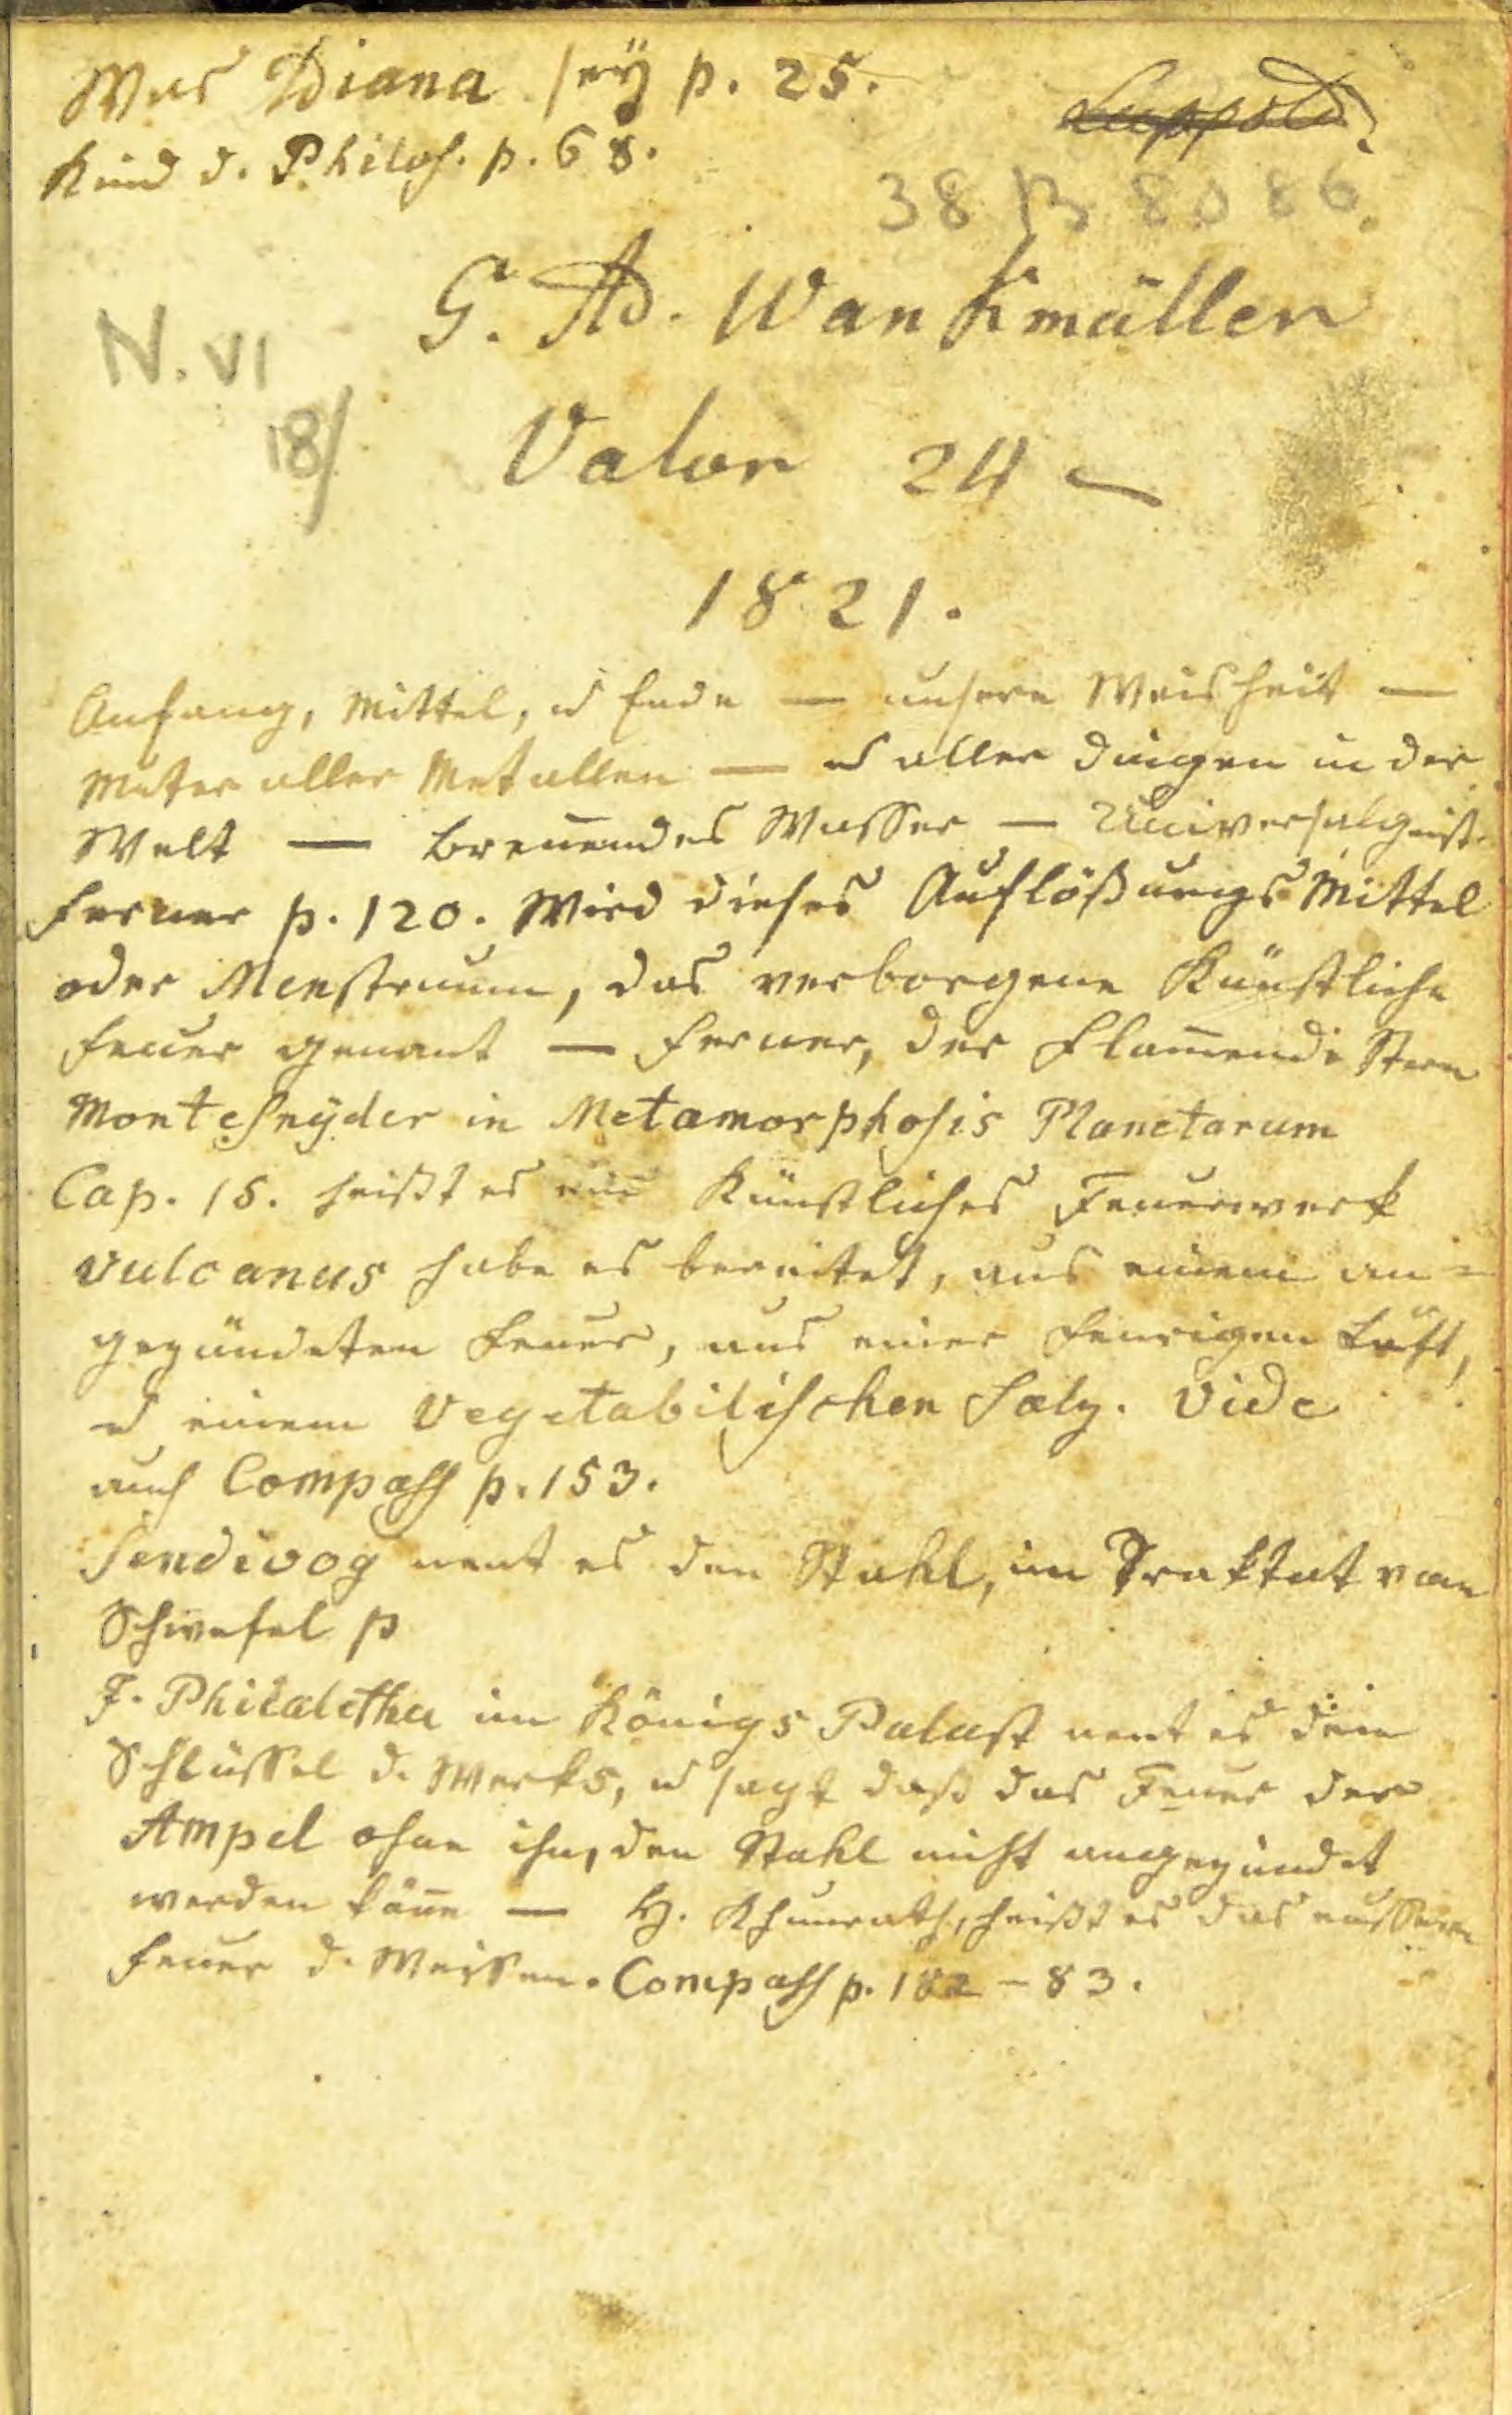 Was Diana seÿ p. 25.
Luppold
Kind d. Philos. p. 68.
38 B 8086
G. Ad. Wankmüller
N. VI
18/
Valor 24 —
1821.
Anfang, Mittel, u Ende — unsere Weisheit —
Mater aller Metallen — u aller Dingen in der
Welt — breñendes Wasser — Universalgeist.
Ferner p. 120. Wird dieses Auflößungs Mittel
oder Menstruum, das verborgene Künstliche
Feuer genant — Ferner, der Flam̄ende Stern
Monte Snÿder in Metamorphosis Planetarum
Cap. 15. heißt es ein Künstliches Feuerwerk
Vulcanus habe es bereitet, aus einem an=
gezündeten Feuer, aus einer feurigen Luft,
u einem Vegetabilischen Salz. Vide
auch Compass p. 153.
Sendivog nent es den Stahl, im Traktat vom
Schwefel p
J. Philaletha im Königs Palast nent es den
Schlüssel d. Werks, u sagt daß das Feuer der
Ampel ohne ihn, den Stahl nicht angezündet
werden köñe — H. Khunrath, heißt es das äussere
Feuer d. Weisen. Compass p. 182 – 83.